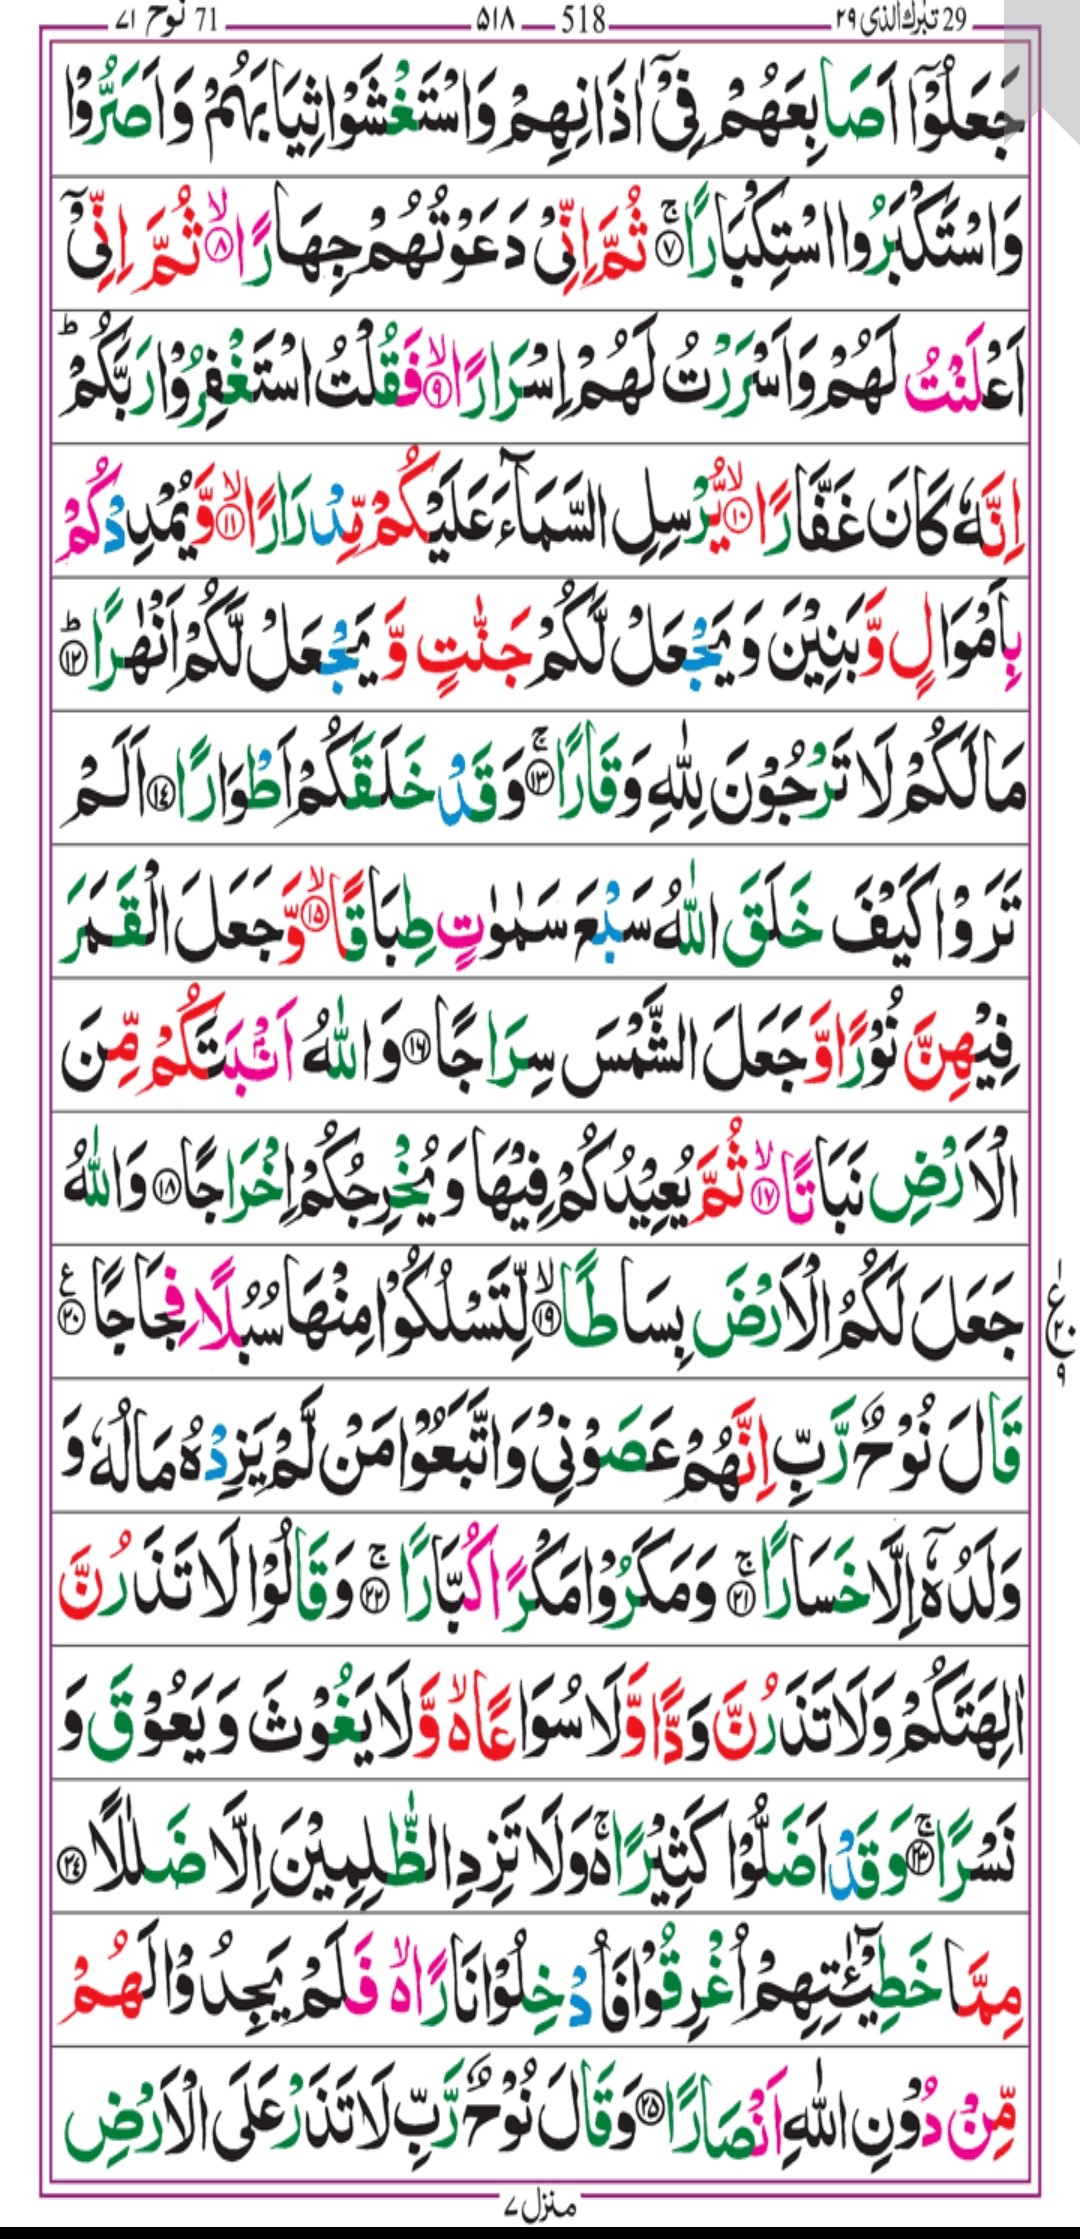 29 تبٰرك الذی ٢٩ 518 ٥١٨ 71 نوح ٧١
جَعَلُوْۤا اَصَابِعَهُمْ فِیْۤ اٰذَانِهِمْ وَاسْتَغْشَوْا ثِیَابَهُمْ وَاَصَرُّوْا
وَاسْتَكْبَرُوا اسْتِكْبَارًا ۚ﴿۷﴾ ثُمَّ اِنِّیْ دَعَوْتُهُمْ جِهَارًا ۙ﴿۸﴾ ثُمَّ اِنِّیْۤ
اَعْلَنْتُ لَهُمْ وَاَسْرَرْتُ لَهُمْ اِسْرَارًا ۙ﴿۹﴾ فَقُلْتُ اسْتَغْفِرُوْا رَبَّكُمْ ؕ
اِنَّهٗ كَانَ غَفَّارًا ۙ﴿۱۰﴾ یُّرْسِلِ السَّمَآءَ عَلَیْكُمْ مِّدْرَارًا ۙ﴿۱۱﴾ وَّیُمْدِدْكُمْ
بِاَمْوَالٍ وَّبَنِیْنَ وَیَجْعَلْ لَّكُمْ جَنّٰتٍ وَّیَجْعَلْ لَّكُمْ اَنْهٰرًا ؕ﴿۱۲﴾
مَالَكُمْ لَا تَرْجُوْنَ لِلّٰهِ وَقَارًا ۚ﴿۱۳﴾ وَقَدْ خَلَقَكُمْ اَطْوَارًا ﴿۱٤﴾ اَلَمْ
تَرَوْا كَیْفَ خَلَقَ اللّٰهُ سَبْعَ سَمٰوٰتٍ طِبَاقًا ۙ﴿۱۵﴾ وَّجَعَلَ الْقَمَرَ
فِیْهِنَّ نُوْرًا وَّجَعَلَ الشَّمْسَ سِرَاجًا ﴿۱۶﴾ وَاللّٰهُ اَنْۢبَتَكُمْ مِّنَ
الْاَرْضِ نَبَاتًا ۙ﴿۱۷﴾ ثُمَّ یُعِیْدُكُمْ فِیْهَا وَیُخْرِجُكُمْ اِخْرَاجًا ﴿۱۸﴾ وَاللّٰهُ
جَعَلَ لَكُمُ الْاَرْضَ بِسَاطًا ۙ﴿۱۹﴾ لِّتَسْلُكُوْا مِنْهَا سُبُلًا فِجَاجًا ﴿۲۰﴾ ع
قَالَ نُوْحٌ رَّبِّ اِنَّهُمْ عَصَوْنِیْ وَاتَّبَعُوْا مَنْ لَّمْ یَزِدْهُ مَالُهٗ وَ
وَلَدُهٗۤ اِلَّا خَسَارًا ۚ﴿۲۱﴾ وَمَكَرُوْا مَكْرًا كُبَّارًا ۚ﴿۲۲﴾ وَقَالُوْا لَا تَذَرُنَّ
اٰلِهَتَكُمْ وَلَا تَذَرُنَّ وَدًّا وَّلَا سُوَاعًا ۙ۵ وَّلَا یَغُوْثَ وَیَعُوْقَ وَ
نَسْرًا ۚ﴿۲۳﴾ وَقَدْ اَضَلُّوْا كَثِیْرًا ۚ۵ وَلَا تَزِدِ الظّٰلِمِیْنَ اِلَّا ضَلٰلًا ﴿۲٤﴾
مِمَّا خَطِیْٓـٰٔتِهِمْ اُغْرِقُوْا فَاُدْخِلُوْا نَارًا ۙ۵ فَلَمْ یَجِدُوْا لَهُمْ
مِّنْ دُوْنِ اللّٰهِ اَنْصَارًا ﴿۲۵﴾ وَقَالَ نُوْحٌ رَّبِّ لَا تَذَرْ عَلَی الْاَرْضِ
منزل ٧